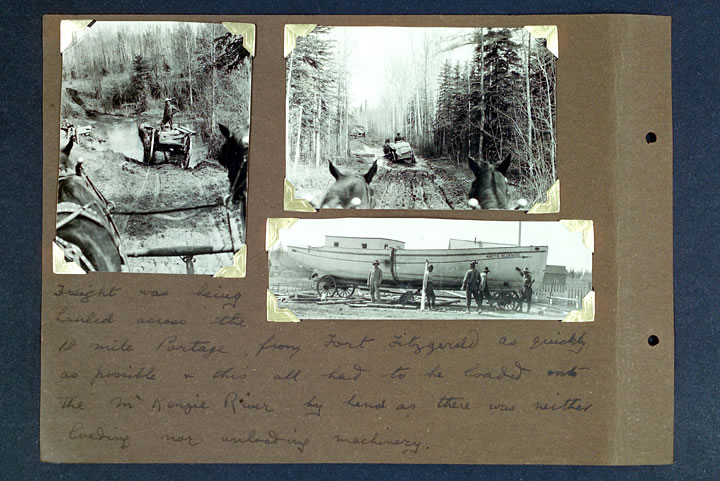 Freight was being
hauled across the
18 mile Portage, from Fort Fitzgerald as quickly
as possible & this all had to be loaded onto
the McKenzie River by hand as there was neither
loading nor unloading machinery.